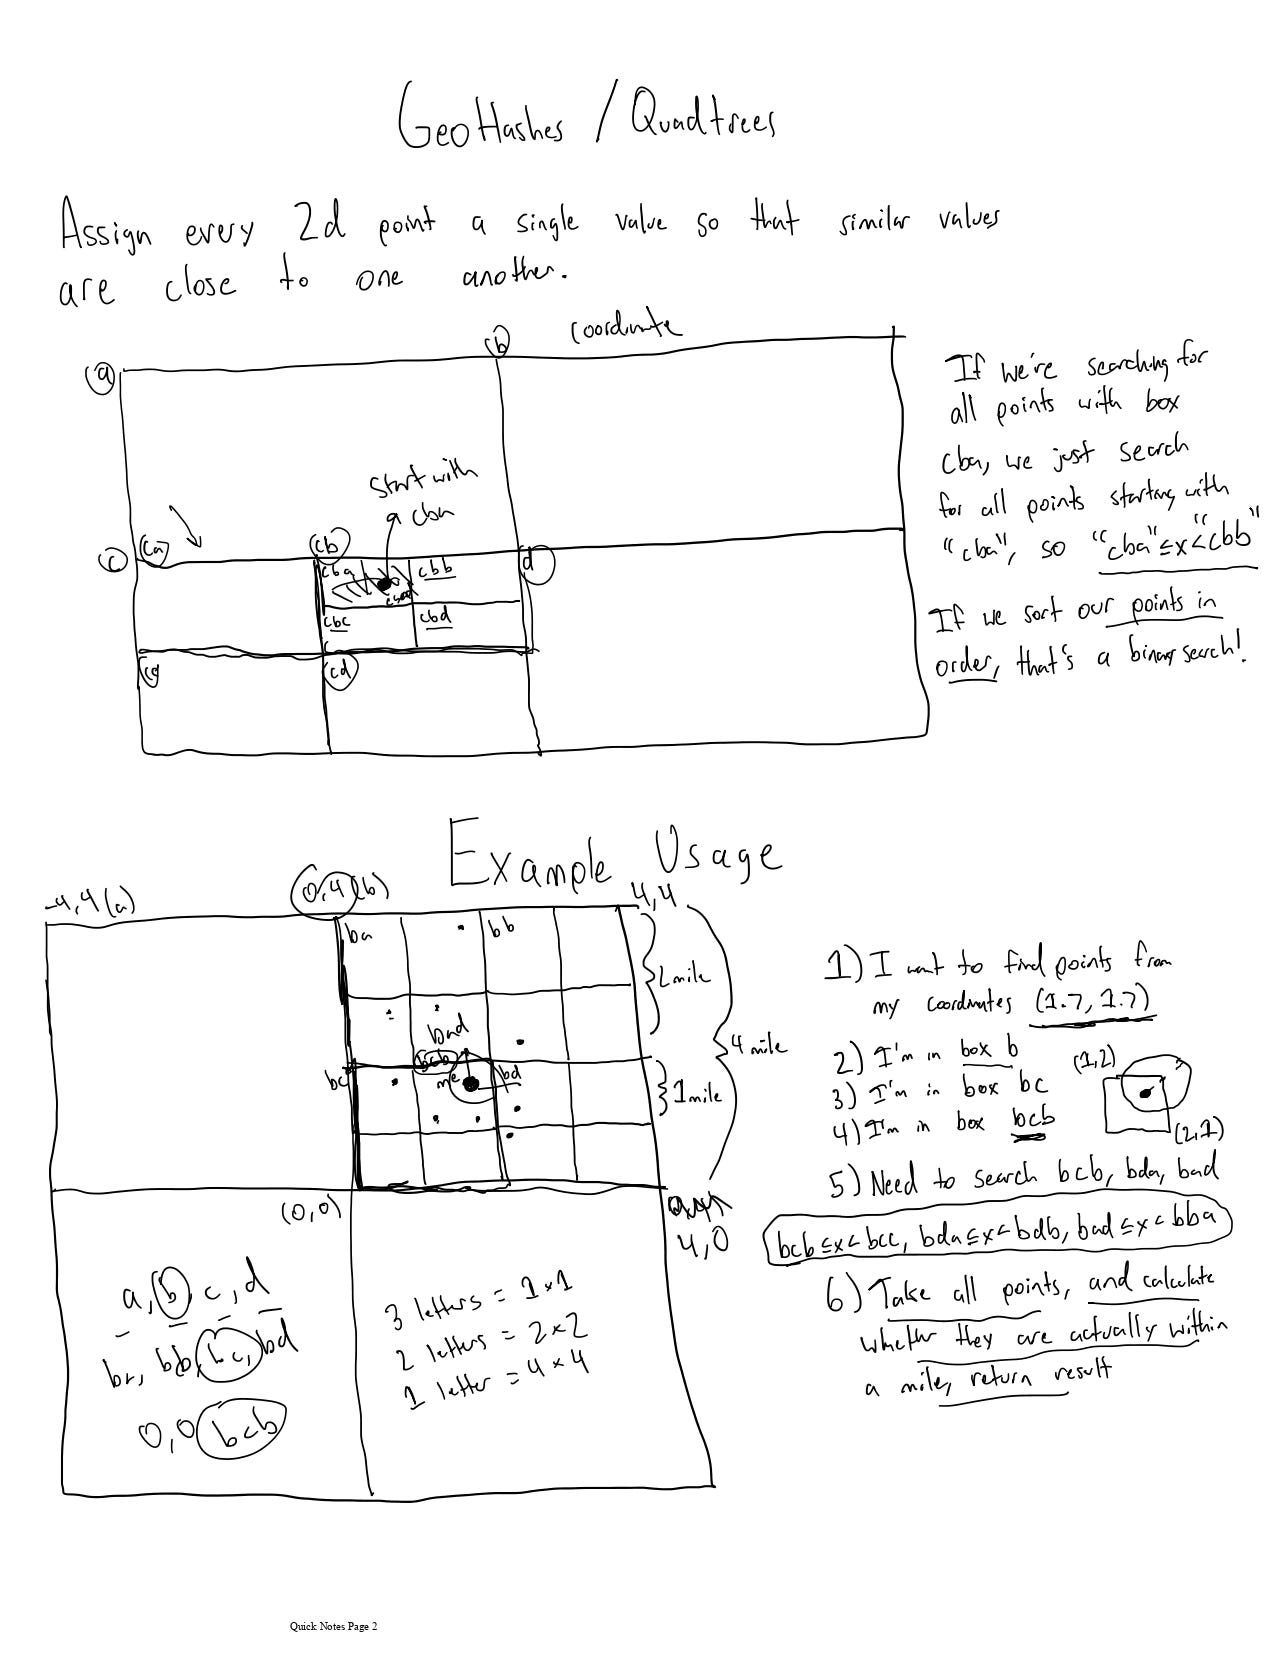 GeoHashes / Quadtrees
Assign every 2d point a single value so that similar values
are close to one another.
coordinate
a
b
c
ca
cb
d
start with
cba
cba
cbb
cbc
cbd
cd
If we're searching for
all points with box
cba, we just search
for all points starting with
"cba", so "cba" ≤ x < "cbb"
If we sort our points in
order, that's a binary search!
Example Usage
-4,4 (a)
0,4 (b)
4,4
ba
bb
2 mile
4 mile
1 mile
bad
bcb
bc
me
bd
(0,0)
4,0
a, b, c, d
ba, bb, bc, bd
0,0 bcb
3 letters = 1×1
2 letters = 2×2
1 letter = 4×4
1) I want to find points from
my coordinates (1.7, 1.7)
2) I'm in box b
3) I'm in box bc
4) I'm in box bcb
(1,2)
(2,1)
5) Need to search bcb, bda, bad
bcb ≤ x < bcc, bda ≤ x < bdb, bad ≤ x < bba
6) Take all points, and calculate
whether they are actually within
a mile, return result
Quick Notes Page 2